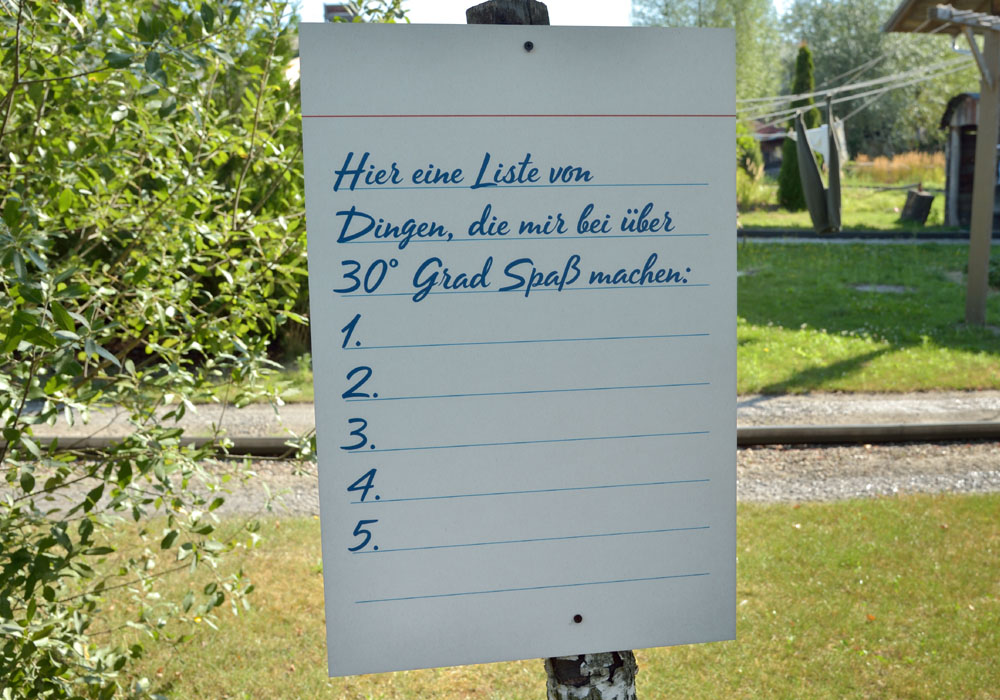 Hier eine Liste von
Dingen, die mir bei über
30° Grad Spaß machen:
1.
2.
3.
4.
5.